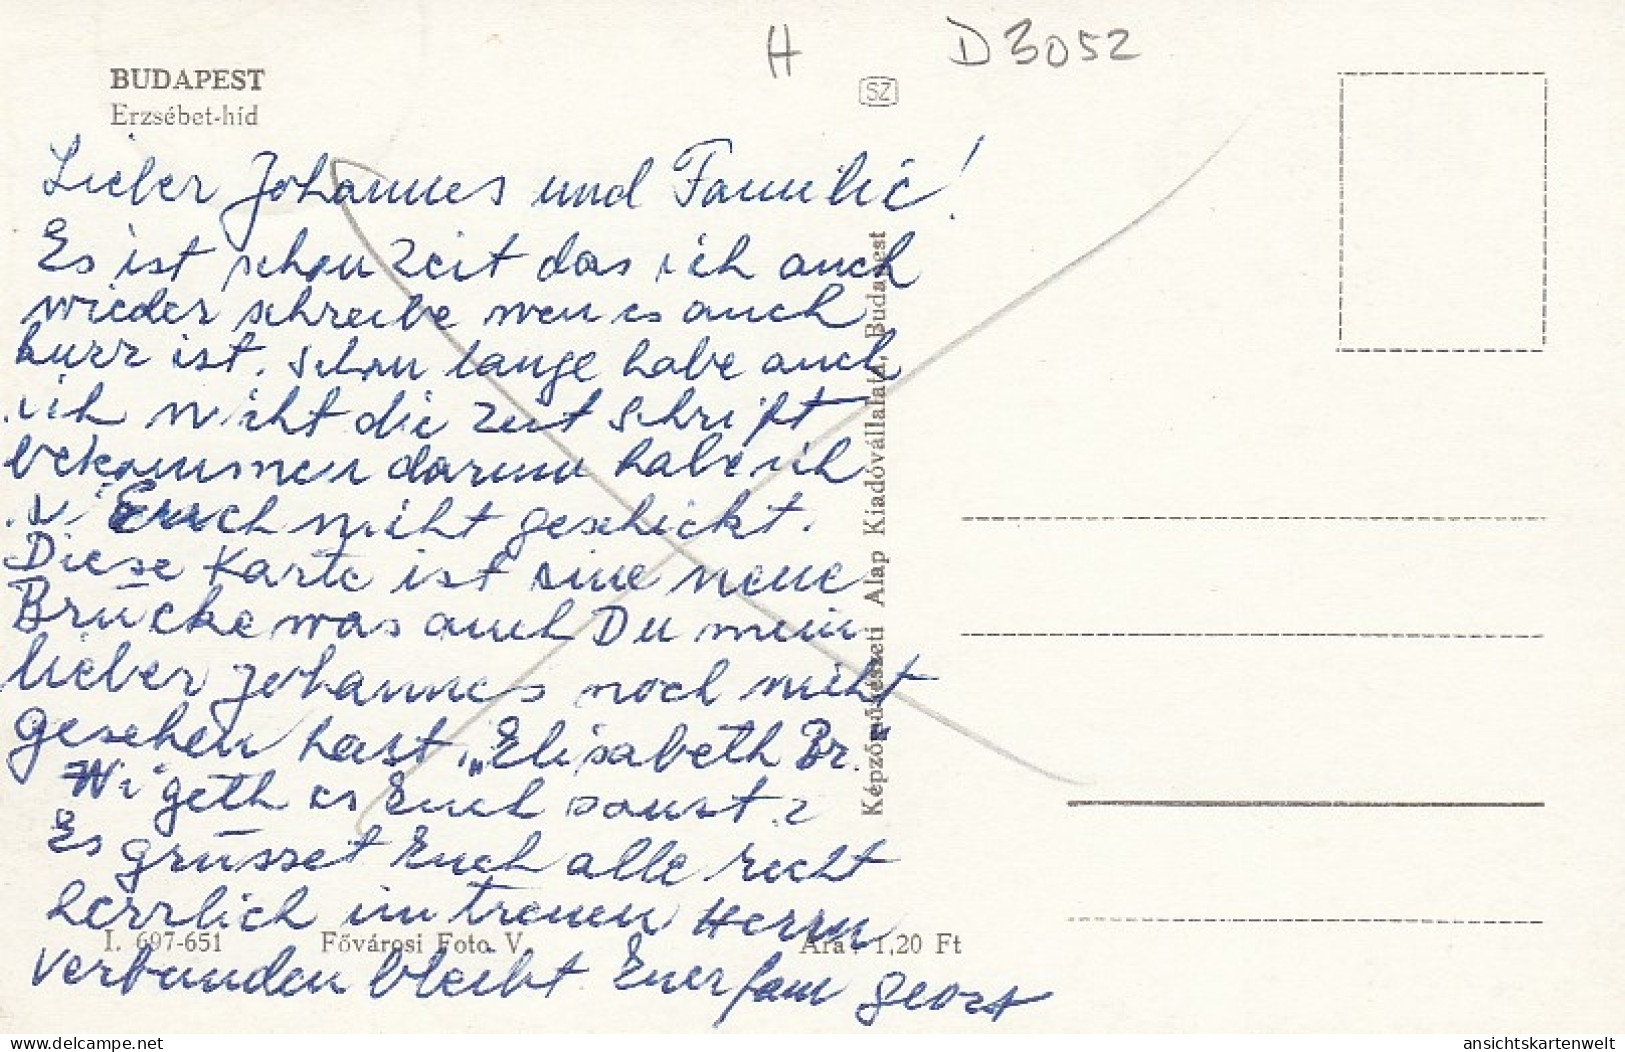 H D 3052
BUDAPEST
Erzsébet-híd
SZ
Lieber Johannes und Familie!
Es ist schon Zeit das ich auch
wieder schreibe wen es auch
kurz ist. Schon lange habe auch
ich nicht die Zeit Schrift
bekommen darum habe ich
Euch nicht geschickt.
Diese Karte ist eine neue
Brücke was auch Du mein
lieber Johannes noch nicht
gesehen hast „Elisabeth Br."
Wi geth es Euch sonst?
Es grüsset Euch alle recht
herrlich im treuen Herrn
verbunden bleibt Euer fam
Képzőművészeti Alap Kiadóvállalata, Budapest
I. 697-651 Fővárosi Foto. V. Ára: 1,20 Ft
delcampe.net
ansichtskartenwelt